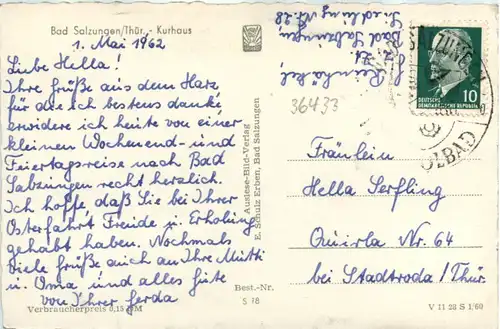 Bad Salzungen/Thür. - Kurhaus
1. Mai 1962
Liebe Hella!
Ihre Grüße aus dem Harz,
für die ich bestens danke,
erwidere ich heute von einer
kleinen Wochenend- und
Feiertagsreise nach Bad
Salzungen recht herzlich.
Ich hoffe daß Sie bei Ihrer
Osterfahrt Freude u. Erholung
gehabt haben. Nochmals
viele Grüße auch an Ihre Mutti
u. Oma und alles Gute
von Ihrer Gerda
Verbraucherpreis 0,15 DM
Best.-Nr.
S 18
Auslese-Bild-Verlag
E. Schulz Erben, Bad Salzungen
Bad Salzungen
Siedlung Nr. 28
36433
10
DEUTSCHE
DEMOKRATISCHE REPUBLIK
SALZUNGEN
SOLBAD
Fräulein
Hella Serfling
Quirla Nr. 64
bei Stadtroda / Thür.
V 11 28 S 1/60